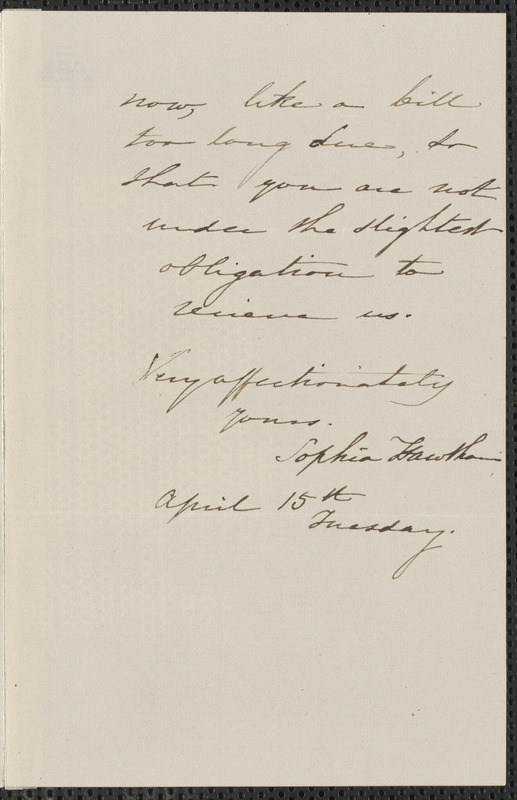 now, like a bill
too long due, so
that you are not
under the slightest
obligation to
receive us.
Very affectionately
yours.
Sophia Hawthorne
April 15th
Tuesday.